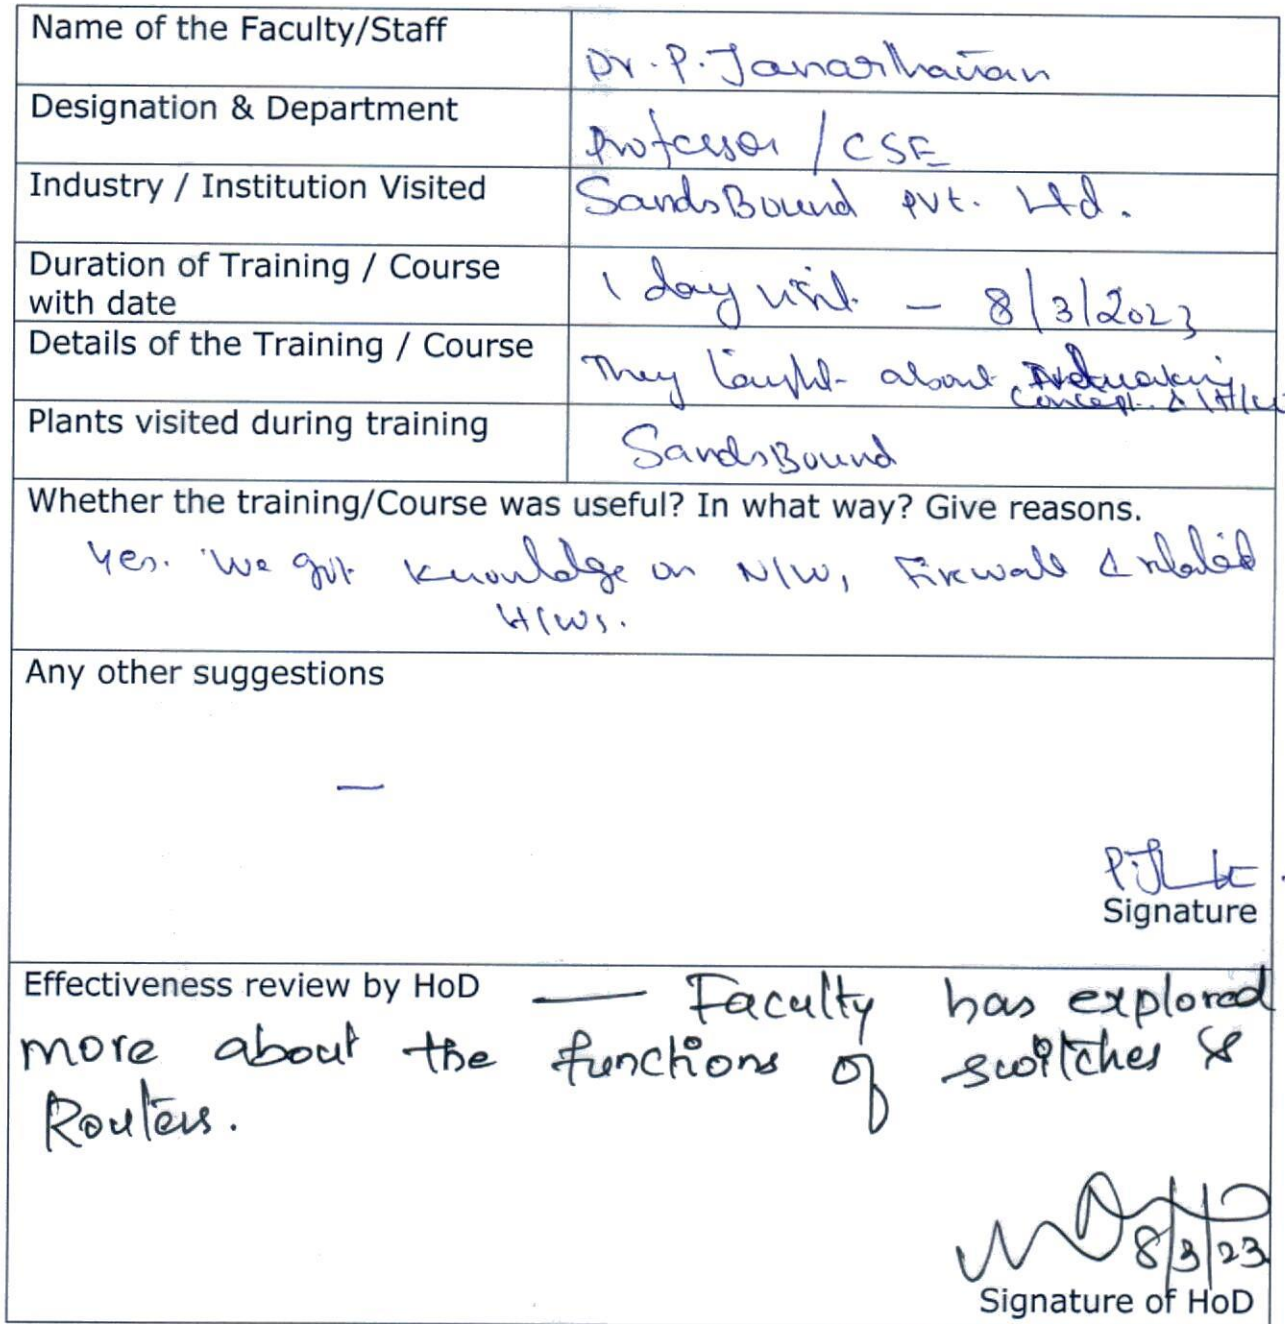 Name of the Faculty/Staff
Dr. P. Janarthanan
Designation & Department
Professor / CSE
Industry / Institution Visited
SandsBound Pvt. Ltd.
Duration of Training / Course
with date
1 day visit – 8/3/2023
Details of the Training / Course
They taught about Networking
Concept & H/w
Plants visited during training
SandsBound
Whether the training/Course was useful? In what way? Give reasons.
Yes. We got knowledge on N/W, Firewall & related
H/Ws.
Any other suggestions
—
Signature
Effectiveness review by HoD — Faculty has explored
more about the functions of switches &
Routers.
8/3/23
Signature of HoD